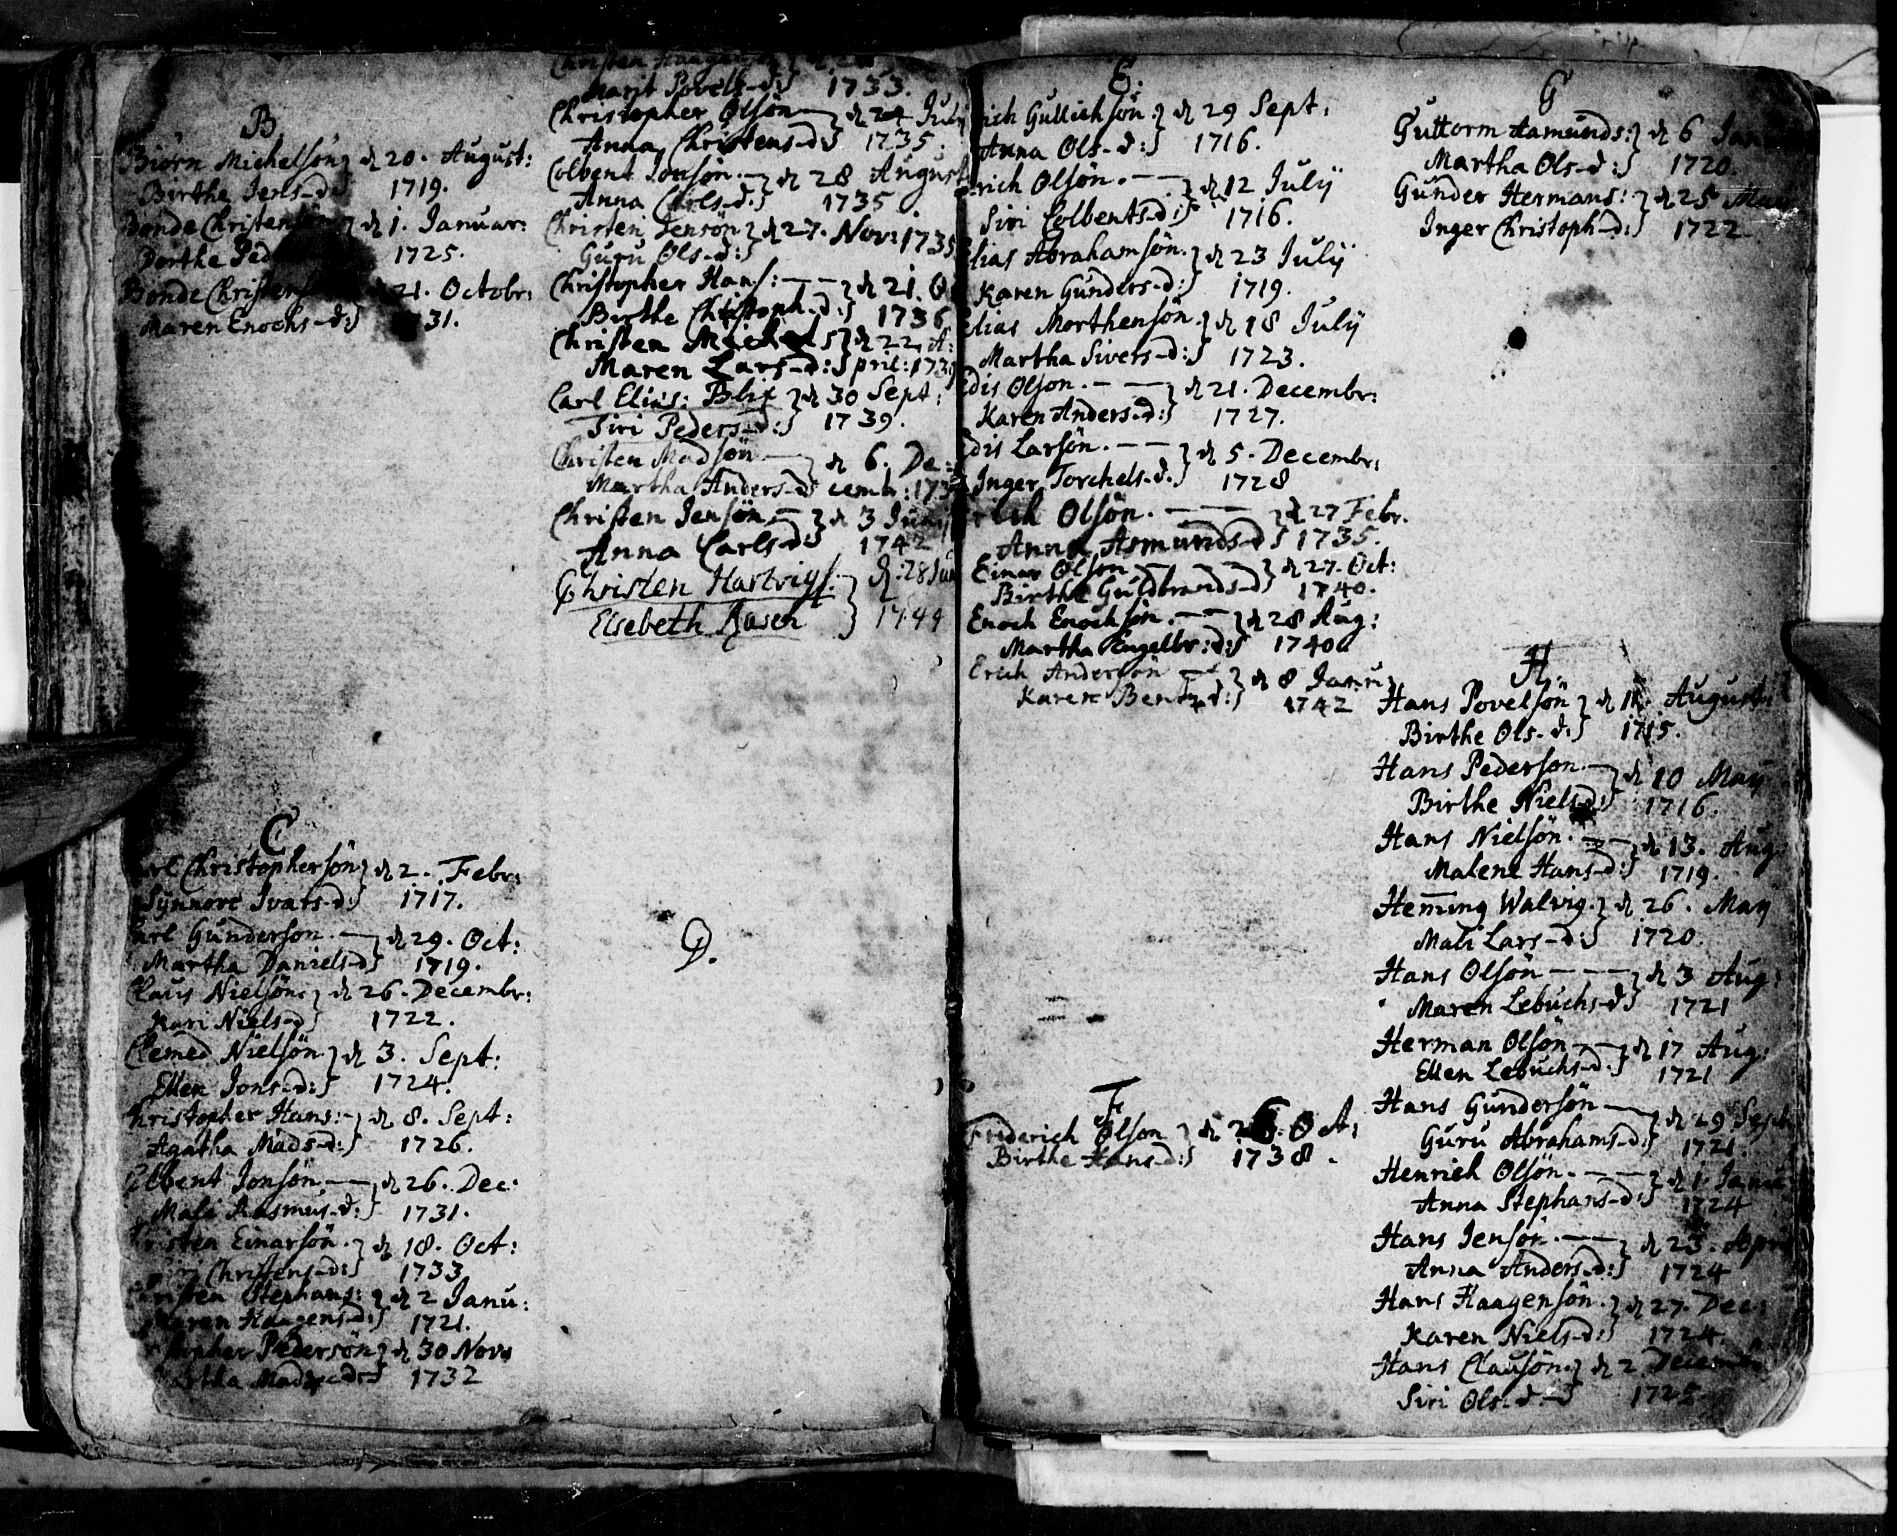 B.
Biörn Michelsön} d 20. August:
Birthe Jens-d:} 1719.
Bonde Christens} d 1. Januar:
Dorthe Ped 1725.
Bonde Christens 21. Octobr:
Maren Enochs-d:} 31.
C
Christophersön} d 2. Febr:
Synnove Ivars-d:} 1717.
Gunderson.—} d 29. Oct:
Martha Daniels-d} 1719.
Claus Nielsön.} d 26. Decembr:
Kari Niels-d} 1722.
Clemed Nielsön.} d 3. Sept:
Ellen Jons-d:} 1724.
Christopher Hans:-} d 8. Sept:
Agatha Mads-d:} 1726.
Colbent Jonsön—} d 26. Dec:
Mali Rasmus-d:} 1731.
Einarsön.} d 18. Oct:
Christens-d:} 1733
Stephans:} d 2 Janu:
Maren Haagens-d:} 1721.
Pedersön} d 30 Nov:
1732
Christen Haagens
Marit Povels-d:} 1733.
Christopher Olson—} d 24 July
Anna Christens-d:} 1735.
Colbent Jonsön.—} d 28 August
Anna Carls-d:} 1735
Christen Jensön} d 27. Nov: 1735
Guru Ols-d:}
Christopher Hans:——} d 21. O
Birthe Christoph-d:} 1736
Christen Michels} d 22 A:
Maren Lars-d:} pril: 173
Carl Elias: Blix} d 30 Sept:
Siri Peders-d:} 1739.
Christen Madsön—} d 6. De:
Martha Anders-d cembr: 173
Christen Jensön.—} d 3 Juny
Anna Carls-d:} 1742
Christen Hartvigs:} d. 28 Jun
Elsebeth Aasen} 1744
D.
E.
rich Gullichsön.} d 29 Sept:
Anna Ols-d:} 1716.
rich Olsön.——} d 12 Julÿ
Siri Colbents-d:} 1716.
Elias Abrahamsön.} d 23 Julÿ
Karen Gunders-d:} 1719.
Elias Morthensön.} d 18 Julÿ
Martha Sivers-d:} 1723.
dis Olson.——} d 21. Decembr:
Karen Anders-d:} 1727.
dis Larsön.——} d 5. Decembr:
Inger Torchels-d.} 1728
Olsön.———} d 27 Febr.
Anna Asmunds-d} 1735.
Einar Olson—} d 27. Oct:
Birthe Guldbrands-d} 1740.
Enoch Enochsön.——} d 28 Aug:
Martha Engelbr:d:} 1740
Erich Andersön—} d 8 Janu:
Karen Bents-d:} 1742
F
Friderich Olson} d 26. Oct:
Birthe Hans-d:} 1738.
G
Guttorm Aamunds:} d 6 Jan
Martha Ols-d:} 1720.
Gunder Hermans:} d 25 May
Inger Christoph-d:} 1722.
H.
Hans Povelsön} d 11. August:
Birthe Ols-d:} 1715.
Hans Pederson.—} d 10 May
Birthe Niels-d:} 1716.
Hans Nielsön.——} d 13. Aug:
Malene Hans-d:} 1719.
Hem̅ing Walvig.} d 26. May
Mali Lars-d:} 1720.
Hans Olsön———} d 3 Aug:
Maren Lebuchs-d} 1721
Herman Olsön——} d 17 Aug:
Ellen Lebuchs-d:} 1721
Hans Gundersön—} d 29 Sept
Guru Abrahams-d:} 1721.
Henrich Olsön.——} d 1. Janu:
Anna Stephans-d:} 1724
Hans Jensön.——} d 23. Apri
Anna Anders-d:} 1724
Hans Haagensön.} d 27. Dec:
Karen Niels-d:} 1724.
Hans Clausön.} d 2 Decemb
Siri Ols-d:—} 1725